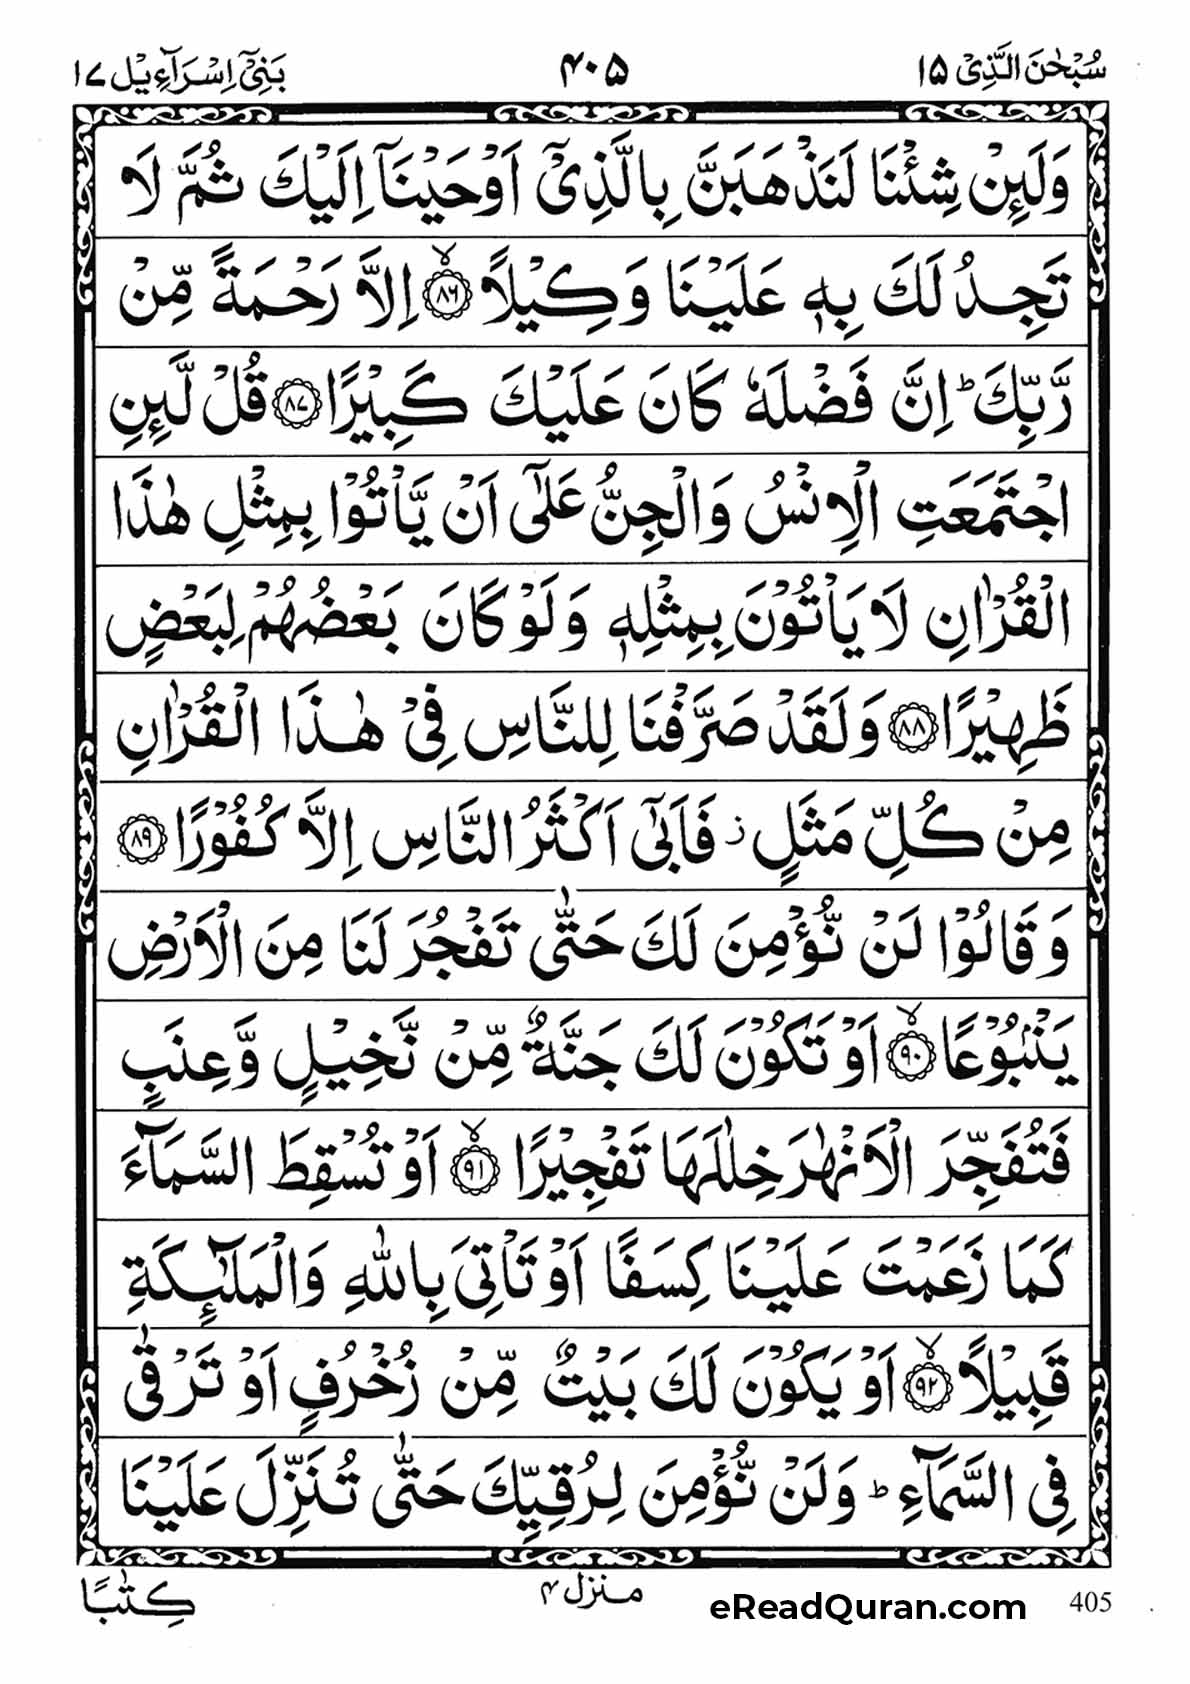 سُبْحٰنَ الَّذِیْۤ ۱۵
۴۰۵
بَنِیْۤ اِسْرَآءِیْل ۱۷
وَلَئِنْ شِئْنَا لَنَذْهَبَنَّ بِالَّذِیْۤ اَوْحَیْنَاۤ اِلَیْكَ ثُمَّ لَا
تَجِدُ لَكَ بِهٖ عَلَیْنَا وَكِیْلًا ﴿۸۶﴾ۙ اِلَّا رَحْمَةً مِّنْ
رَّبِّكَ ؕ اِنَّ فَضْلَهٗ كَانَ عَلَیْكَ كَبِیْرًا ﴿۸۷﴾ قُلْ لَّئِنِ
اجْتَمَعَتِ الْاِنْسُ وَالْجِنُّ عَلٰۤی اَنْ یَّاْتُوْا بِمِثْلِ هٰذَا
الْقُرْاٰنِ لَا یَاْتُوْنَ بِمِثْلِهٖ وَلَوْ كَانَ بَعْضُهُمْ لِبَعْضٍ
ظَهِیْرًا ﴿۸۸﴾ وَلَقَدْ صَرَّفْنَا لِلنَّاسِ فِیْ هٰذَا الْقُرْاٰنِ
مِنْ كُلِّ مَثَلٍ ؗ فَاَبٰۤی اَكْثَرُ النَّاسِ اِلَّا كُفُوْرًا ﴿۸۹﴾
وَقَالُوْا لَنْ نُّؤْمِنَ لَكَ حَتّٰی تَفْجُرَ لَنَا مِنَ الْاَرْضِ
یَنْۢبُوْعًا ﴿۹۰﴾ۙ اَوْ تَكُوْنَ لَكَ جَنَّةٌ مِّنْ نَّخِیْلٍ وَّعِنَبٍ
فَتُفَجِّرَ الْاَنْهٰرَ خِلٰلَهَا تَفْجِیْرًا ﴿۹۱﴾ۙ اَوْ تُسْقِطَ السَّمَآءَ
كَمَا زَعَمْتَ عَلَیْنَا كِسَفًا اَوْ تَاْتِیَ بِاللّٰهِ وَالْمَلٰٓئِكَةِ
قَبِیْلًا ﴿۹۲﴾ۙ اَوْ یَكُوْنَ لَكَ بَیْتٌ مِّنْ زُخْرُفٍ اَوْ تَرْقٰی
فِی السَّمَآءِ ؕ وَلَنْ نُّؤْمِنَ لِرُقِیِّكَ حَتّٰی تُنَزِّلَ عَلَیْنَا
كِتٰبًا
منزل ۴
eReadQuran.com
405